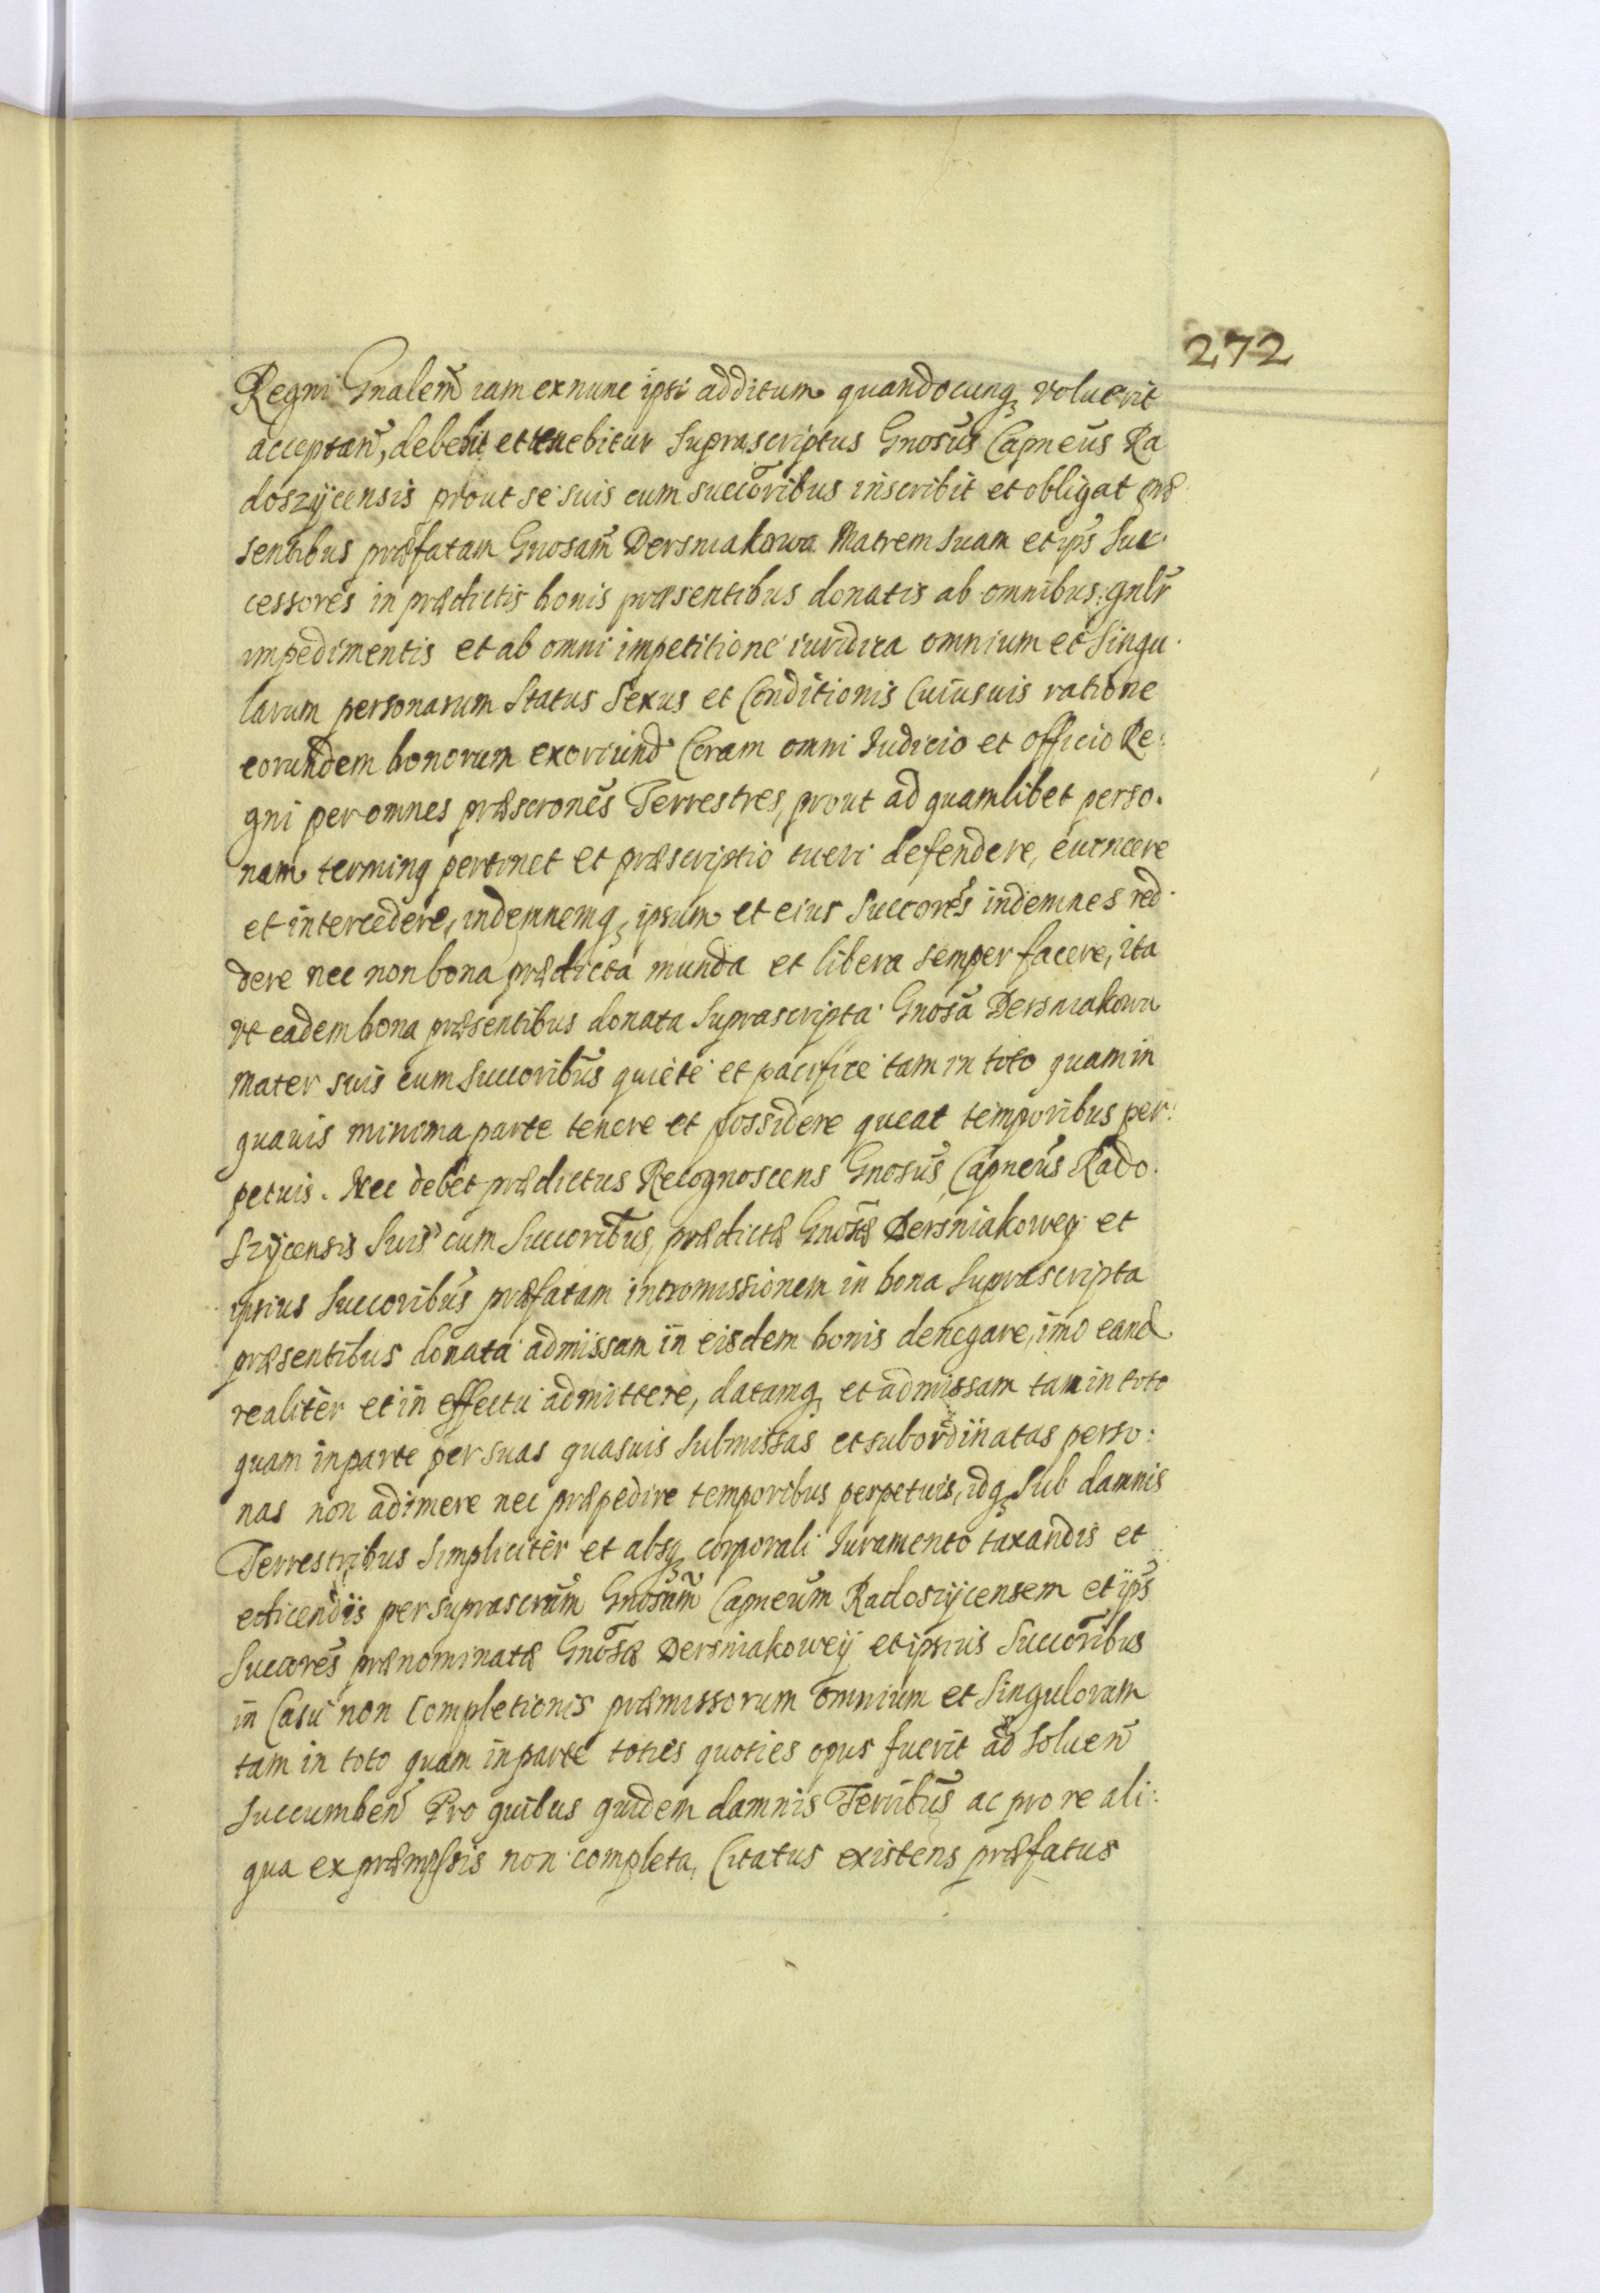 272
Regni Gnalem iam exnunc ipsi additum quandocunq voluerit
acceptan, debebit et tenebitur Suprascriptus Gnosus Capneus Ra
doszÿcensis prout se suis cum succoribus inscribit et obligat præ
sentibus præfatam Gnosam Dersniakowa Matrem suam et ips Suc
cessores in prædictis bonis præsentibus donatis ab omnibus gnlr
impedimentis et ab omni impetitione iuridica omnium et Singu
larum personarum Status Sexus et Conditionis Cuiusuis ratione
eorundem bonorum exoriund Coram omni Iudicio et officio Re:
gni per omnes præscrones Terrestres, prout ad quamlibet perso.
nam terminq pertinet et præscriptio tueri defendere, euincere
et intercedere, indemnemq ipsum et eius Succores indemnes red
dere nec non bona prædicta munda et libera semper facere, ita
vt eadem bona præsentibus donata Suprascripta Gnosa Dersniakowa
Mater suis cum Succoribus quiete et pacifice tam in toto quam in
quauis minima parte tenere et possidere queat temporibus per:
petuis. Nec debet prædictus Recognoscens Gnosus Capneus Rado.
szÿcensis Suis cum Succoribus, prædictæ Gnosæ Dersniakoweÿ et
ipsius Succoribus præfatam intromissionem in bona Suprascripta
præsentibus donata admissam in eisdem bonis denegare, imo eand
realiter et in effectu admittere, datamq et admissam tam in toto
quam in parte per suas quasuis Submissas et subordinatas perso:
nas non adimere nec præpedire temporibus perpetuis, idq Sub damnis
Terrestribus Simpliciter et absq corporali Iuramento taxandis et
edicendis per suprascrum Gnosum Capneum Radoszÿcensem et ips
Succores prænominatæ Gnosæ Dersniakoweÿ et ipsius Succoribus
in Casu non Completionis præmissorum omnium et Singulorum
tam in toto quam in parte toties quoties opus fuerit ad Soluen
Succumben Pro quibus quidem damnis Terribus ac pro re ali:
qua ex præmissis non completa, Citatus existens præfatus